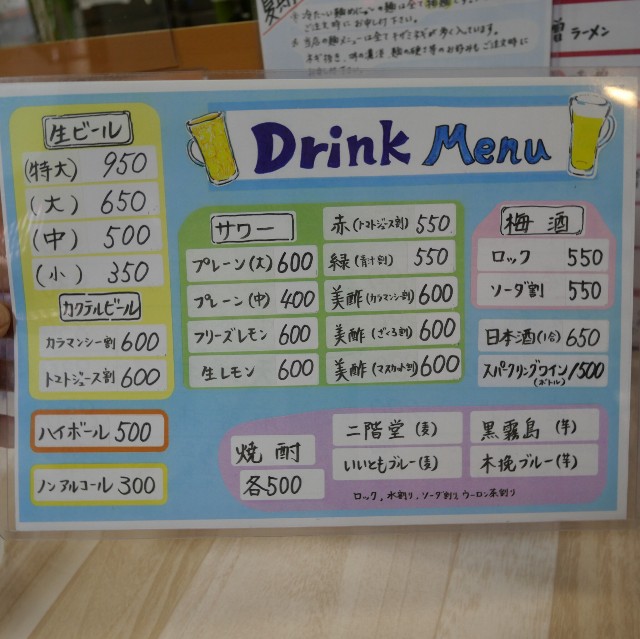 冷たい麺めにゅーの麺は全て
ご注文時にお申し付け下さい。
当店の麺メニューは全てキザミネギが多く入っています。
ネギ抜き、味の濃淡、麺の硬さ等のお好みもご注文時に
ラーメン
Drink Menu
生ビール
(特大) 950
(大) 650
(中) 500
(小) 350
カクテルビール
カラマンシー割 600
トマトジュース割 600
ハイボール 500
ノンアルコール 300
サワー
プレーン(大) 600
プレーン(中) 400
フリーズレモン 600
生レモン 600
赤(トマトジュース割) 550
緑(青汁割) 550
美酢(カラマンシー割) 600
美酢(ざくろ割) 600
美酢(マスカット割) 600
梅酒
ロック 550
ソーダ割 550
日本酒(1合) 650
スパークリングワイン 1500
(ボトル)
焼酎
各500
二階堂(麦)
いいともブルー(麦)
黒霧島(芋)
木挽ブルー(芋)
ロック、水割り、ソーダ割り、ウーロン茶割り